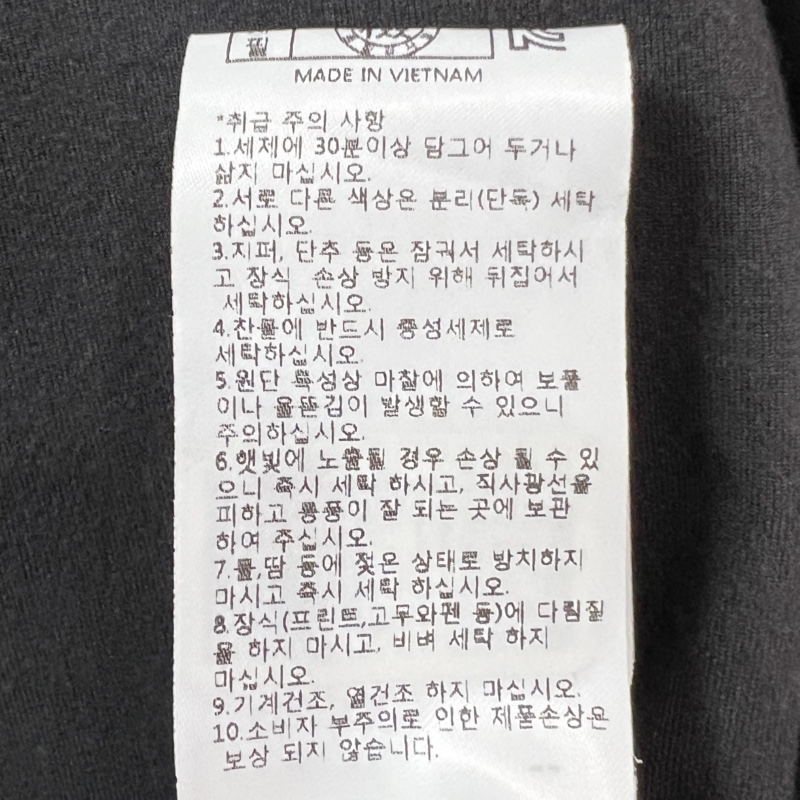 필
MADE IN VIETNAM
*취급 주의 사항
1.세제에 30분이상 담그어 두거나
삶지 마십시오.
2.서로 다른 색상은 분리(단독) 세탁
하십시오.
3.지퍼, 단추 등은 잠궈서 세탁하시
고 장식 손상 방지 위해 뒤집어서
세탁하십시오.
4.찬물에 반드시 중성세제로
세탁하십시오.
5.원단 특성상 마찰에 의하여 보풀
이나 올뜯김이 발생할 수 있으니
주의하십시오.
6.햇빛에 노출될 경우 손상 될 수 있
으니 즉시 세탁 하시고, 직사광선을
피하고 통풍이 잘 되는 곳에 보관
하여 주십시오.
7.물,땀 등에 젖은 상태로 방치하지
마시고 즉시 세탁 하십시오.
8.장식(프린트,고무와펜 등)에 다림질
을 하지 마시고, 비벼 세탁 하지
마십시오.
9.기계건조, 열건조 하지 마십시오.
10.소비자 부주의로 인한 제품손상은
보상 되지 않습니다.